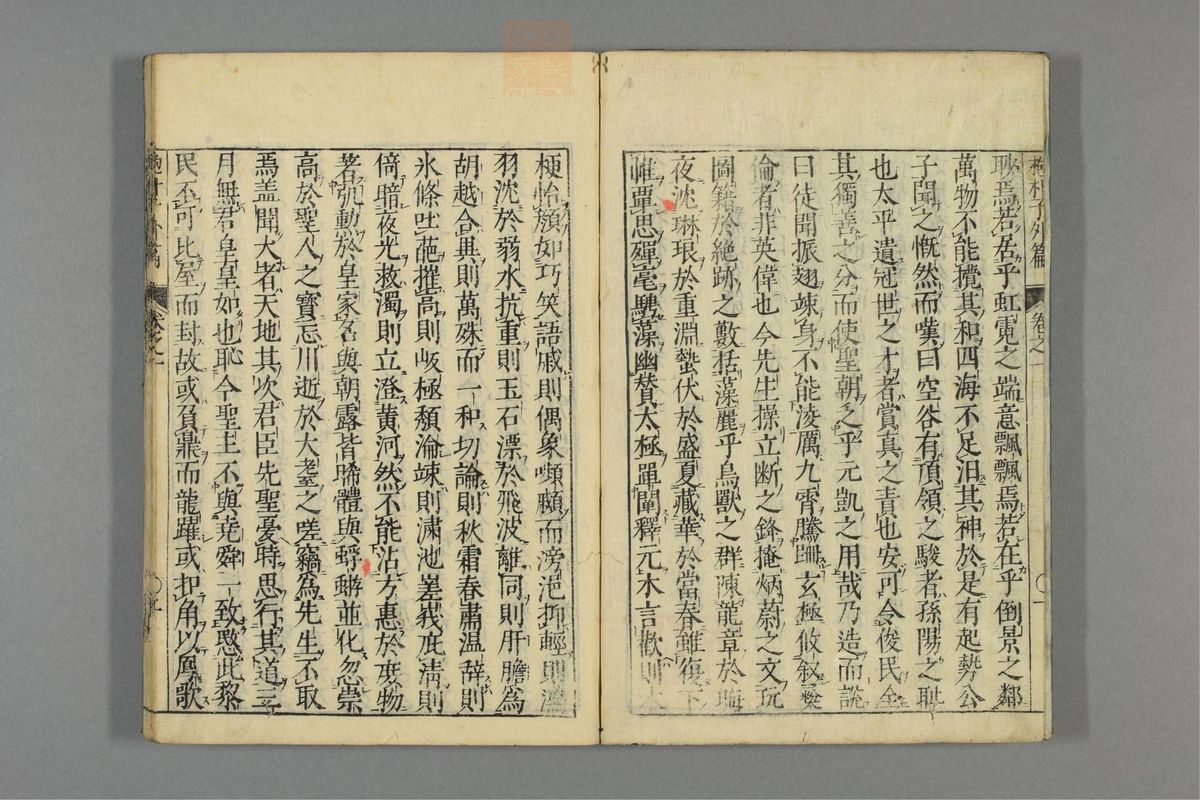 抱朴子外篇 卷之一
眇焉若居乎虹霓之端意飄飄焉若在乎倒景之鄰
萬物不能攪其和四海不足汨其神於是有赴勢公
子聞之慨然而嘆曰空谷有項領之駿者孫陽之恥
也太平遺冠世之才者賞真之責也安可令俊民全
其獨善之分而使聖朝乏乎元凱之用哉乃造而說
曰徒聞振翅竦身不能凌厲九霄騰跚玄極攸叙彝
倫者非英偉也今先生操立断之鋒掩炳蔚之文玩
圖籍於絶跡之藪括藻麗乎鳥獸之群陳龍章於晦
夜沈琳琅於重淵蟄伏於盛夏藏華於當春雖復下
帷覃思殫毫騁藻幽賛太極闡釋元本言歡則木
梗怡顏如巧笑語戚則偶象嚬顣而滂沱抑輕則鴻
羽沈於弱水抗重則玉石漂於飛波離同則肝膽為
胡越合異則萬殊而一和切論則秋霜春肅温辞則
氷條吐葩摧高則峻極頹淪竦則淵池嵳我疵清則
倚暗夜光救濁則立澄黄河然不能沾大惠於庶物
著弘勲於皇家名與朝露皆晞體與蜉蝣並化忽崇
高於聖人之寳忘川逝於大耋之嗟竊為先生不取
焉盖聞大者天地其次君臣先聖憂時思行其道三
月無君皇皇如也恥今聖主不與堯舜一致愍此黎
民不可比屋而封故或負鼎而龍躍或扣角以鳳歌